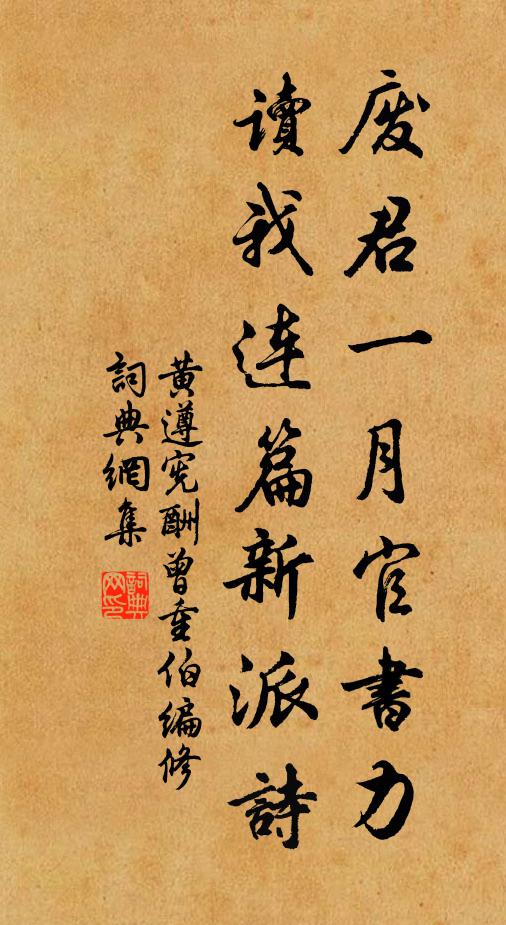 废君一月官書力
讀我连篇新派詩
黃遵宪酬曾重伯编修
詞典網集
詞典网印